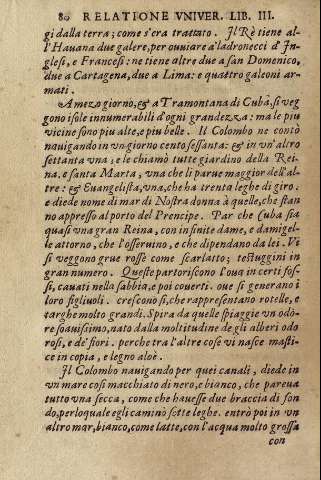 80 RELATIONE VNIVER. LIB. III.
gi dalla terra; come s'era trattato. Il Rè tiene al-
l'Hauana due galere, per ouuiare a'ladronecci d'In-
glesi, e Francesi: ne tiene altre due a san Domenico,
due a Cartagena, due a Lima: e quattro galeoni ar-
mati.
A mezo giorno, & a Tramontana di Cuba, si veg
gono isole innumerabili d'ogni grandezza: ma le piu
vicine sono piu alte, e piu belle. Il Colombo ne contò
nauigando in vn giorno cento sessanta: & in vn'altro
settanta vna; e le chiamò tutte giardino della Rei-
na. e santa Marta, vna che li parue maggior dell'al-
tre: & Euangelista, vna, che ha trenta leghe di giro.
e diede nome di mar di Nostra donna à quelle, che stan
no appresso al porto del Prencipe. Par che Cuba sia
quasi vna gran Reina, con infinite dame, e damigel-
le attorno, che l'osseruino, e che dipendano da lei. Vi
si veggono grue rosse come scarlatto; testuggini in
gran numero. Queste partoriscono l'oua in certi fos-
si, cauati nella sabbia, e poi couerti. oue si generano i
loro figliuoli. crescono sì, che rappresentano rotelle, e
targhe molto grandi. Spira da quelle spiaggie vn odò-
re soauissimo, nato dalla moltitudine de gli alberi odo
rosi, e de' fiori. perche tra l'altre cose vi nasce masti-
ce in copia, e legno aloè.
Il Colombo nauigando per quei canali, diede in
vn mare così macchiato di nero, e bianco, che pareua
tutto vna secca, come che hauesse due braccia di fon
do, per lo quale egli caminò sette leghe. entrò poi in vn
altro mar, bianco, come latte, con l'acqua molto grossa
con